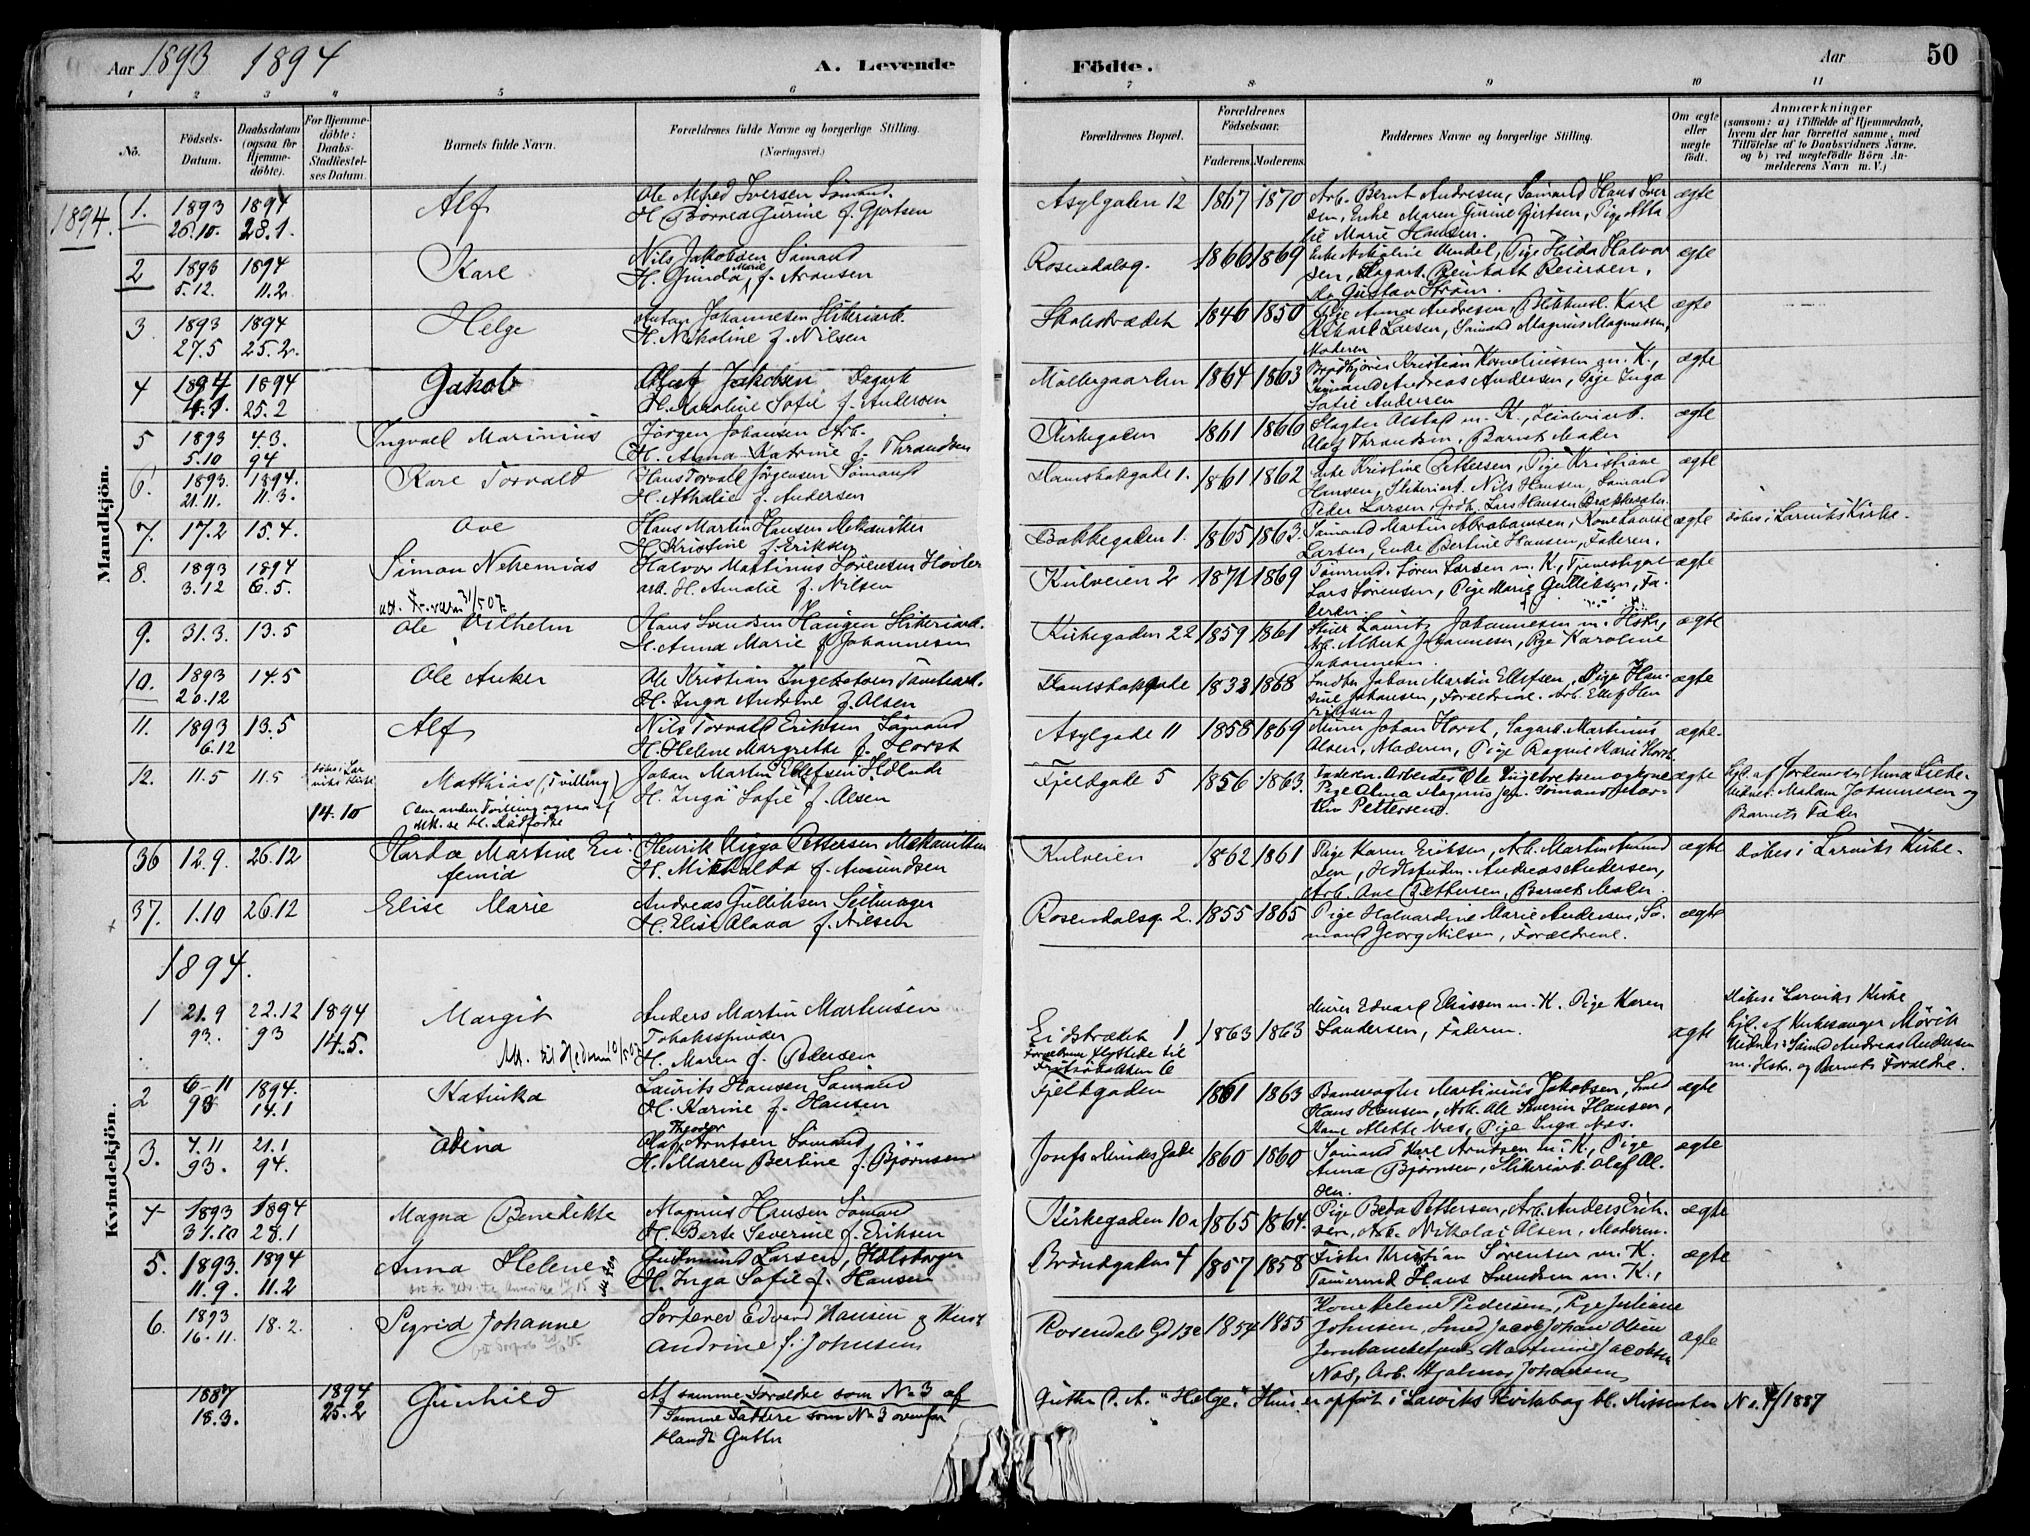 Aar 1893 1894
A. Levende
Födte.
Aar
50
1 2 3 4 5 6 7 8 9 10 11
No.
Födsels-Datum.
Daabsdatum (ogsaa for Hjemmedöbte).
For Hjemmedöbte: Daabs-Stadfæstelses Datum.
Barnets fulde Navn.
Forældrenes fulde Navne og borgerlige Stilling.
(Næringsvei.)
Forældrenes Bopæl.
Forældrenes Födselsaar.
Faderens. Moderens.
Faddernes Navne og borgerlige Stilling.
Om ægte eller uægte födt.
Anmærkninger
(saasom: a) i Tilfælde af Hjemmedaab, hvem der har forrettet samme, med Tilföielse af to Daabsvidners Navne, og b) ved uægtefödte Börn Anmelderens Navn m. V.)
Mandkjön.
1894.
1. 1893 26.10. 1894 28.1. Alf
Ole Alfred Iversen Sømand.
H. Børrea Gurine f. Gjertsen
Asylgaden 12 1867 1870
Arb. Bernt Andresen, Sømand Hans Iversen, Enke Maren Gurine Gjertsen, Pige
Marie Hansen.
ægte
2 1893 5.12. 1894 11.2. Kare
Nils Jakobsen Sømand
H. Gunda Marie f. Aronsen
Rosendalsg. 1866 1869
Pige Hilda Halvorsen, Dagarb. Reinhart Reiersen,
do Gustav Strøm.
ægte
3 1893 27.5 1894 25.2. Helge
Anton Johannesen Sliberiarb.
H. Nikoline f. Nilsen
1846 1850
Pige Anna Andresen, Karl
Rikard Larsen, Sømand Magnus Magnussen,
Moderen
ægte
4 1894 4.1. 1894 25.2 Jakob
Olaf Jakobsen Dagarb
H. Karoline Sofie f. Andersen
Møllegaarden 1864 1863
Kristian Korneliussen m. K.,
Sømand Andreas Andersen, Pige Inga
Sofie Andersen
ægte
5 1893 5.10 4.3. 94 Ingvall Marinius
Jørgen Johansen Arb.
H. Anna Katrine f. Thrandsen
Kirkegaden 1861 1866
Slagter Alstad m. K., Sliberiarb.
Olaf Thrandsen, Barnets Moder
ægte
6. 1893. 21.11. 1894. 11.3. Kare Torvald
Hans Torvall Jørgensen Sømand
H. Athalie f. Andersen
1. 1861 1862
Enke Kristine Pettersen, Pige Kristiane
Hansen, Sliberiarb. Nils Hansen, Sømand
Peder Larsen, Lars Hansen
ægte
7. 17.2 15.4. Ove
Hans Martin Hansen Mekaniker
H. Kristine f. Eriksen
Bakkegaden 1. 1865 1863.
Sømand Martin Abrahamsen, Kone Lovise
Larsen, Enke Bertine Hansen, Faderen.
ægte
Døbes i Larviks Kirke.
8. 1893 3.12 1894 6.5. Simon Nehemias
Halvor Martinus Sørensen Høvler
arb. H. Amalie f. Nilsen
Kulveien 2 1871 1869
Tømmermd. Søren Larsen m. K., Tjenestegut
Lars Sørensen, Pige Marie Gulliksen, Faderen.
ægte
31/5 07.
9. 31.3. 13.5 Ole Vilhelm
Hans Svendsen Haugen Sliberiarb.
H. Anna Marie f. Johannesen
Kirkegaden 22 1859 1861
Laurits Johannesen m. Hstr.,
Arb. Albert Johannesen, Pige Karoline
Johannesen.
ægte
10. 1893 26.12 14.5 Ole Anker
Ole Kristian Ingebretsen
H. Inga Andrine f. Olsen
1833 1868
Johan Martin Ellefsen, Pige Hansine Johansen, Forældrene. Arb. Ellef Henriksen
ægte
11. 1893 6.12 13.5 Alf
Nils Torvald Eriksen Sømand
H. Helene Margrethe f. Horst
Asylgade 11 1858 1869
Murer Johan Horst, Dagarb Martinus
Olsen, Moderen, Pige Ragnil Marie Horst.
ægte.
12. 11.5 11.5 døbes i Larviks Kirke 14.10 Matthias (Tvilling)
(den anden Tvilling ogsaa af
Mk. se bl. Dødfødte
Johan Martin Ellefsen
H. Inga Sofie f. Olsen
Fjeldgade 5 1856 1863.
Faderen. Arbeider Ole Ingebretsen og kone
Pige Alma Magnusen, Sømand
Pettersen.
ægte
Hj. af Jordemor Anna Lie
Vidner: Madam Johannesen og
Barnets Fader
36 12.9. 26.12 Harda Martine Eufemia
Henrik Viggo Pettersen Mekaniker
H. Mithalda f. Amundsen
Kulveien 1862 1861
Pige Karen Eriksen, Arb. Martin Amundsen, Andreas Andersen,
Arb. Ove Pettersen, Barnets Moder.
ægte
Døbes i Larviks Kirke.
37. 1.10 26.12 Elise Marie
Andreas Gulliksen Seilmager
H. Elise Olava f. Nilsen
Rosendalsg. 2. 1855 1865
Pige Halvardine Marie Andersen, Sømand Georg Nilsen, Forældrene.
ægte
Kvindekjön.
1894.
1 21.9 93. 22.12 93 1894 14.5. Margit
10/5 07
Anders Martin Martinsen
Tobaksspinder
H. Maren f. Pedersen
Eidstrædet 1
Forældrene flyttede til
6
1863 1863
Murer Edvard Eliassen m. K. Pige Karen
Sandersen, Faderen.
ægte
Døbes i Larviks Kirke
Hj. af Kirkesanger Mørik
Vidner: Sømd Andreas Andersen
m. Hstr. og Barnets Forældre.
2 6-11 93 1894. 14.1 Katinka
Laurits Hansen Sømand
H. Karine f. Hansen
Fjeldgaden 1861 1863
Banevogter Martinius Jakobsen, Smed
Hans Hansen, Arb. Ole Severin Hansen,
Kone Alette Næs, Pige Inga Næs.
ægte
3. 7.11 93. 21.1 94. Odina
Olaf Theodor Arntsen Sømand
H. Maren Bertine f. Bjørnsen
Josefs Minders Gade 1860 1860
Sømand Karl Arntsen m. K., Pige
Anna Bjørnsen, Sliberiarb. Olaf Olsen.
ægte
4 1893 31.10 1894 28.1 Magna Benedikte
Magnus Hansen Sømand
H. Berte Severine f. Eriksen
Kirkegaden 10a 1865 1864.
Pige Beda Pettersen, Arb. Anders Eriksen, Arb. Nikolai Olsen, Moderen.
ægte
5. 1893. 11.9. 1894 11.2 Anna Helene
Gudmund Larsen,
H. Inga Sofie f. Hansen
Brøndgaden 4 1857 1858
Fisker Kristian Sørensen m. K.
Tømmermd Hans Svendsen m. K.,
ægte
6. 1893 16.11. 18.2. Sigrid Johanne
Edvard Hansen og Hust.
Andrine f. Johnsen
Rosendals Gd 13c 1854 1855
Kone Helene Pedersen, Pige Juliane
Johnsen, Smed Jacob Johan Olsen
Jacobsen
Næs, Arb. Hjalmar Johansen
ægte
1887 18.3. 1894 25.2 Gunhild
Af samme Forældre som No 3 af
Samme Faddere som No 3 ovenfor
blandt Gutter
Gutten "Helge". Hun er opført i Larviks Kirkebog bl. No 1887